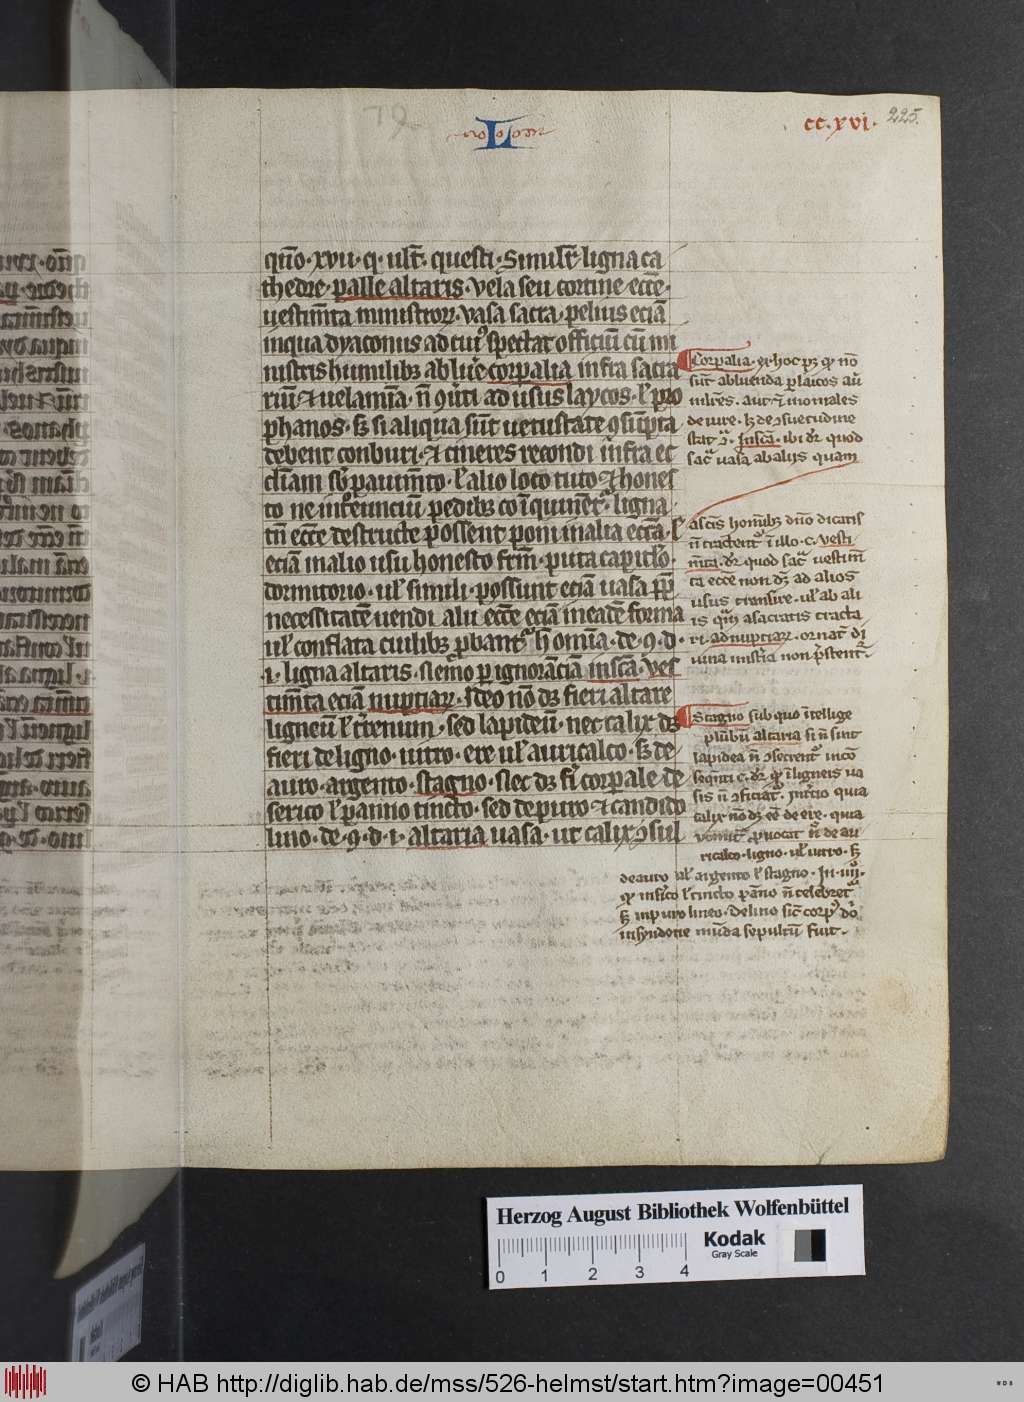 L
cc.xvi. 225.
qn̄o. xvii. q. ult̄. questi. Simil̄r ligna ca
thedre. palle altaris. vela seu cortine ecc̄e.
uestim̄ta ministroꝝ. vasa sacra. peluis eciā
inqua dyaconus ad cui᷒ spectat officiū cū mi
nistris humilibꝫ abluē̄ corporalia infra sacra
riū ⁊ uelamīa. n̄ ꝯu̾ti ad usus laycos. l̾ pro
phanos. sꝫ si aliqua sūt uetustate ꝯsūpta
debent conburi. ⁊ cineres recondi infra ec
cl̄iam sb̾ pauim̄to. l̾ alio loco tuto ⁊ hones
to ne int̾euncīu pedibꝫ coīquinent᷑. ligna
tn̄ ecc̄e destructe possent poni in alia ecc̄a. l̾
eciā in alio usu honesto fr̄m. puta capitl̾o.
dormitorio. ul̾ simili. possunt eciā uasa ꝓꝑ
necessitatē uendi alii ecc̄e eciā in eadē forma
ul̾ conflata cuilibꝫ ꝓbant᷑ h̾ omīa. de. ꝯ. d.
i. ligna altaris. Nem̄o ꝑ ignorāciā inscā. Ves
tim̄ta eciā nuptiaꝝ. Ideo nō dꝫ fieri altare
ligneū l̾ t̾renum. sed lapideū. nec calix dꝫ
fieri de ligno. uitro. ere ul̾ auricalco. sꝫ de
auro. argento. stagno. Nec dꝫ fi̾ corporale de
serico l̾ panno tincto. sed de puro ⁊ candido
lino. de. ꝯ. d. i. altaria uasa. ut calix ꝯsul
Corporalia. ex hoc pꝫ qꝫ nō
sūt abluenda ꝑ laicos aū
mlieres. aut ⁊ moniales
de iure. lꝫ de ꝯsuetudine
stat̄ ꝯ̄. Inscā. ibi dr̄. quod
sac̾ uasa ab aliis quam
a sc̄is hom̄ibꝫ dn̄o dicatis
n̄ tractent᷑ ī illo. c. vesti
mīta. dr̄. quod sac̾ uestim̄
ta ecc̄e non dꝫ ad alios
usus transire. ul̾ ab ali
is qm̄ a sacratis tracta
ri. ad nuptiaꝝ. ornat̄ di
uina mist̾ia non p̄stent᷑.
Stagno sub quo ītellige
plūbū altaria si n̄ sint
lapidea n̄ ꝯsecrent᷑ in cō
seq̄nti c. dr̄. qꝫ ī ligneis ua
sis n̄ ꝯficiat᷑. quia
calix nō dꝫ eē de ere. quia
vomitū ꝓuocat n̄ de au
ricalco. ligno. ul̾ uitro. sꝫ
de auro ul̾ argento l̾ stagno. In. iiij.
qꝫ in sīco l̾ tincto panno n̄ celebret᷑
sꝫ in puro lineo. de lino sic̄ corp᷒ dōi
in syndone munda sepultū fuit.
Herzog August Bibliothek Wolfenbüttel
Kodak
Gray Scale
0 1 2 3 4
© HAB http://diglib.hab.de/mss/526-helmst/start.htm?image=00451